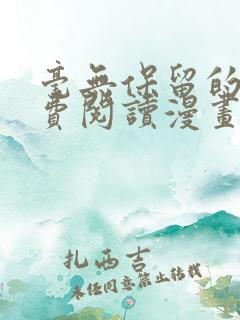 毫無保留的
費閱讀漫畫
扎西吉
未經同意禁止轉載